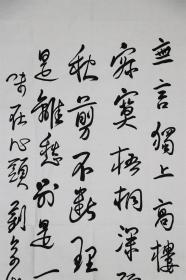 無言獨上高樓
寂寞梧桐深
秋剪不斷理
是離愁別是一
味在心頭劉